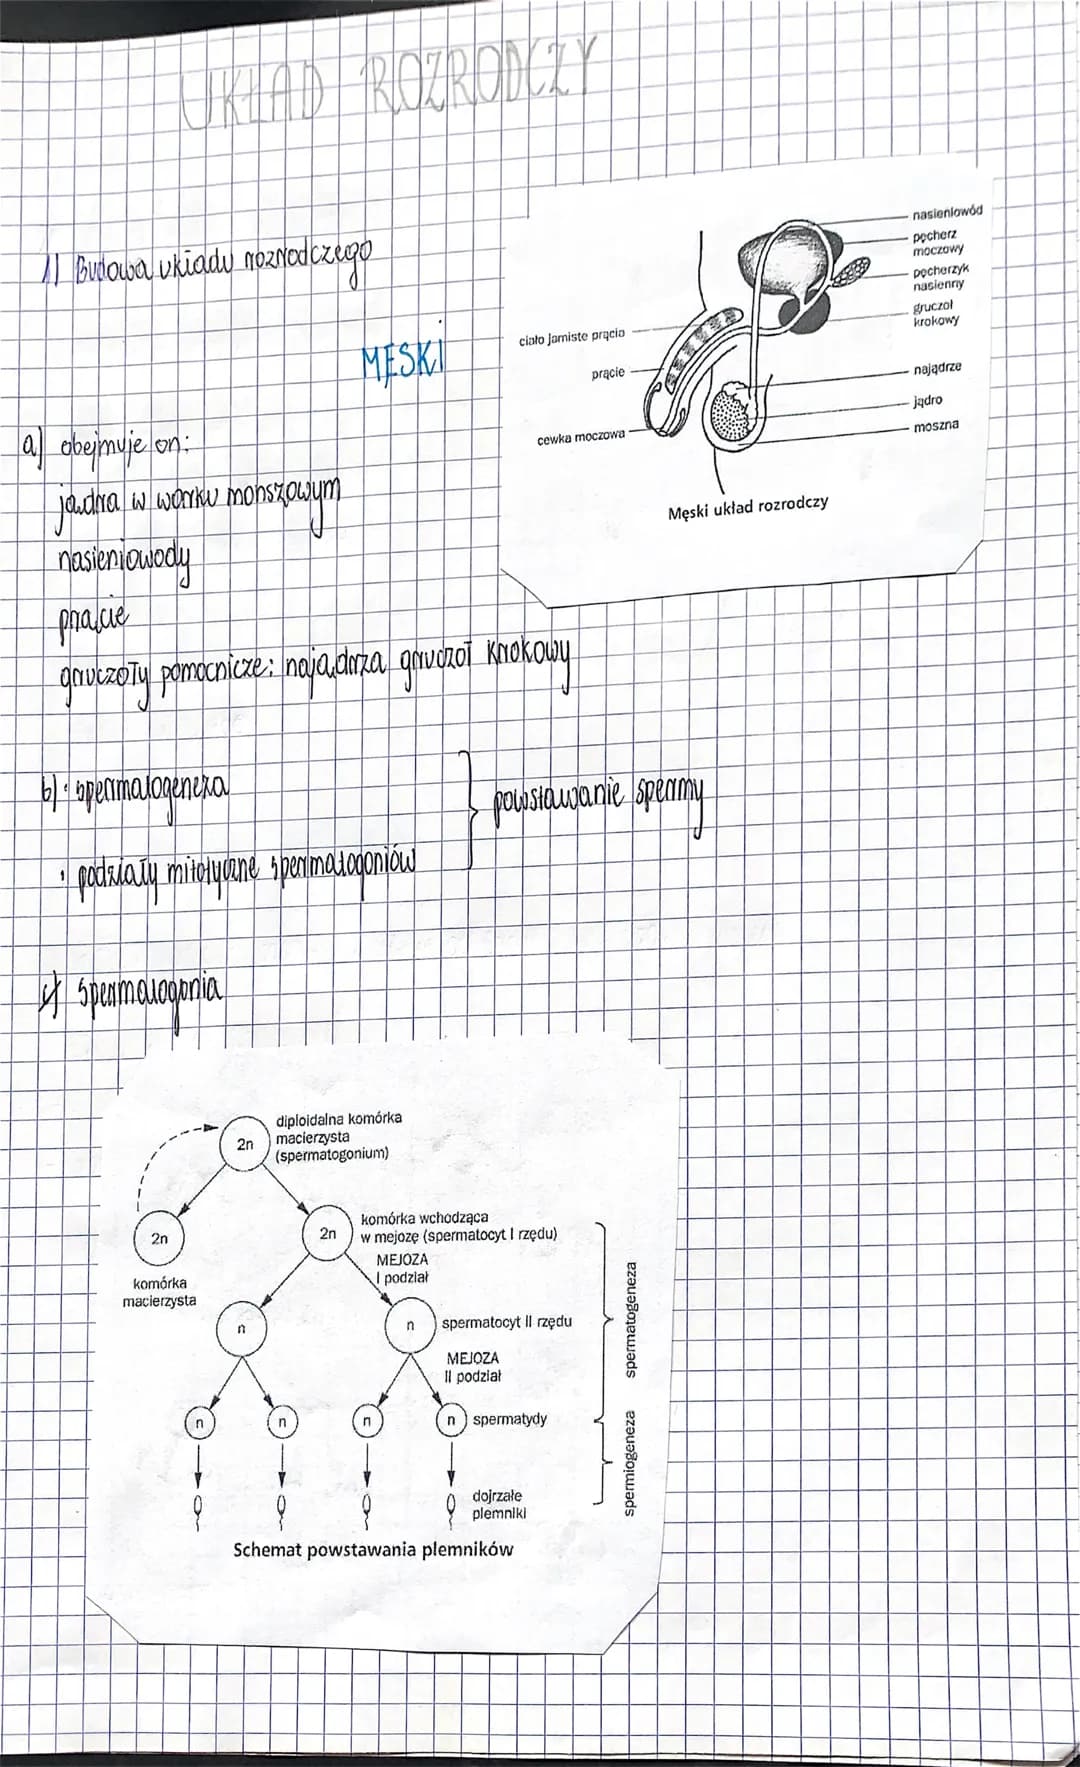 UKŁAD ROZRODCZY
1) Budowa układu rozrodczego
MĘSKI
nasieniowód
pęcherz
moczowy
pęcherzyk
nasienny
gruczoł
krokowy
najądrze
jądro
moszna
ciało jamiste prącia
prącie
cewka moczowa
Męski układ rozrodczy
a) obejmuje on:
jądra w worku monszowym
nasieniowody
prącie
gruczoły pomocnicze: najądrza gruczoł krokowy
b) • spermatogeneza
• podziały mitotyczne spermatogoniów
powstawanie spermy
c) spermatogonia
2n
diploidalna komórka
macierzysta
(spermatogonium)
2n
komórka
macierzysta
2n
komórka wchodząca
w mejozę (spermatocyt I rzędu)
MEJOZA
I podział
n
n
spermatocyt II rzędu
MEJOZA
II podział
n
n
n
n
spermatydy
dojrzałe
plemniki
spermatogeneza
spermiogeneza
Schemat powstawania plemników